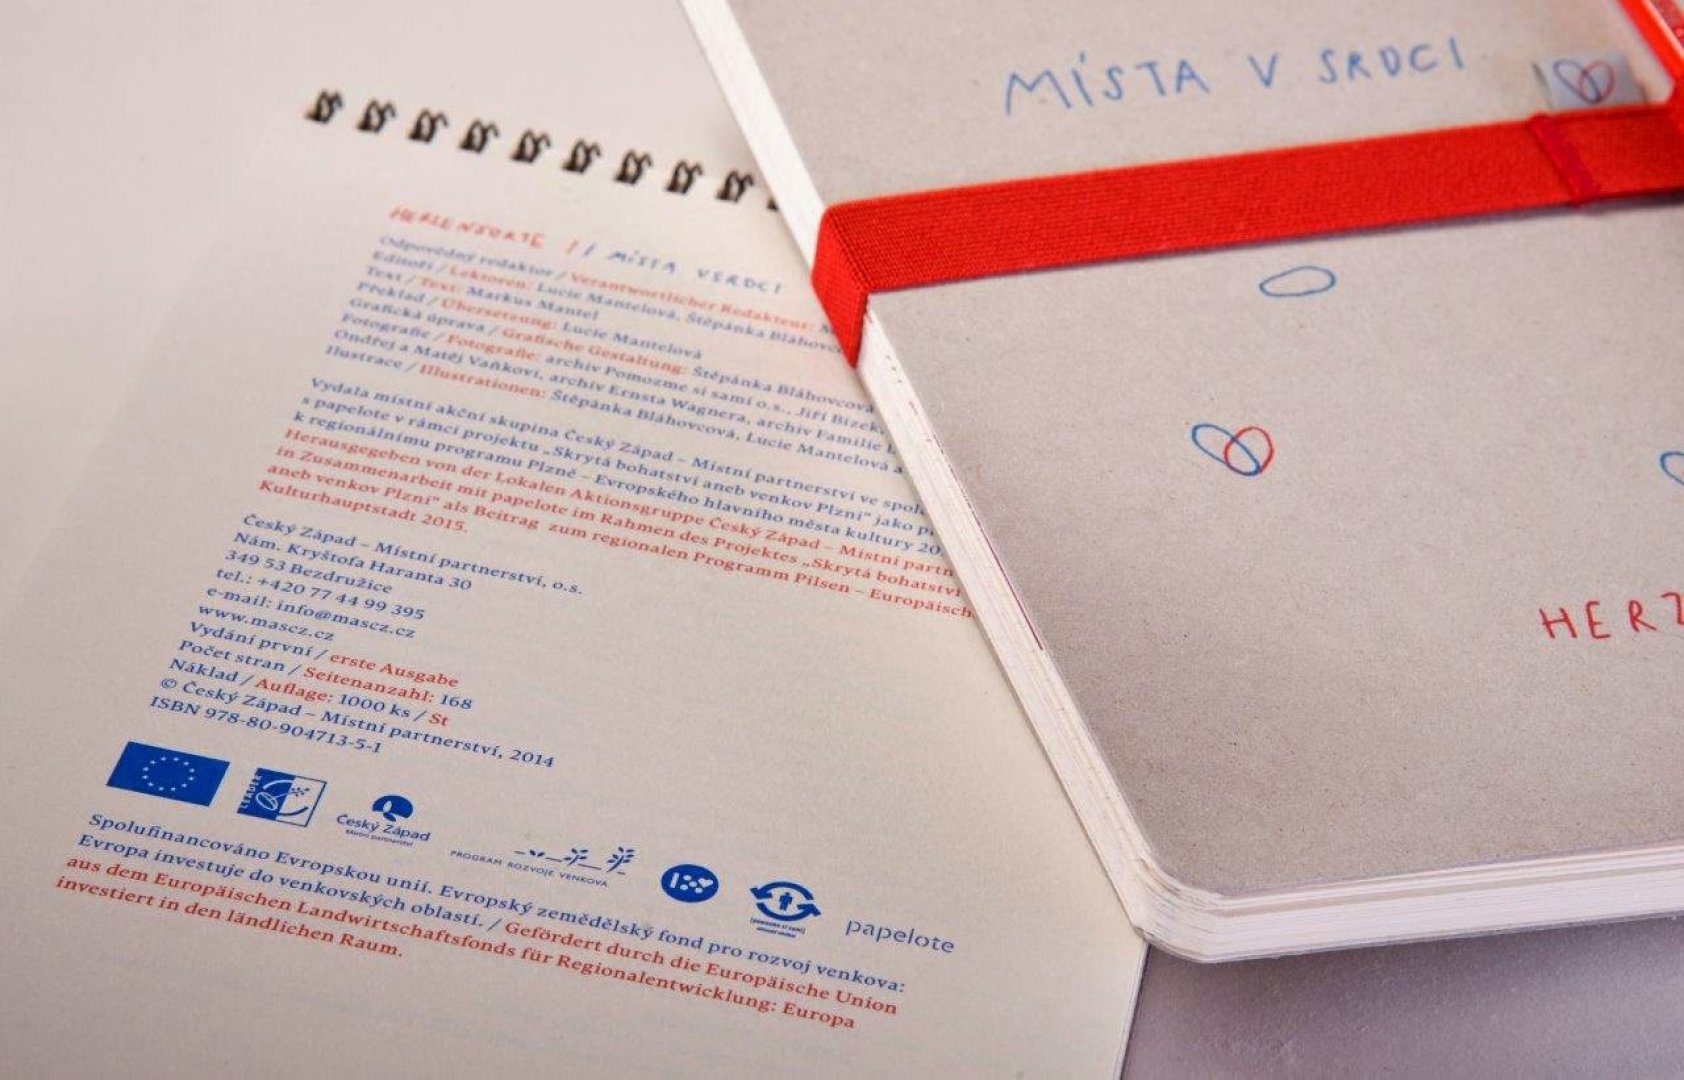 HERZENSORTE // MÍSTA V SRDCI
Odpovědný redaktor / Verantwortlicher Redakteur:
Editoři / Lektoren: Lucie Mantelová, Štěpánka Bláhovc
Text / Text: Markus Mantel
Překlad / Übersetzung: Lucie Mantelová
Grafická úprava / Grafische Gestaltung: Štěpánka Bláhovcová
Fotografie / Fotografie: archiv Pomozme si sami o.s., Jiří Bízek,
Ondřej a Matěj Vaňkovi, archiv Ernsta Wagnera, archiv Familie
Ilustrace / Illustrationen: Štěpánka Bláhovcová, Lucie Mantelová a
Vydala místní akční skupina Český Západ – Místní partnerství ve spol
s papelote v rámci projektu „Skrytá bohatství aneb venkov Plzni“ jako p
k regionálnímu programu Plzně – Evropského hlavního města kultury 20
Herausgegeben von der Lokalen Aktionsgruppe Český Západ – Místní partn
in Zusammenarbeit mit papelote im Rahmen des Projektes „Skrytá bohatství
aneb venkov Plzni“ als Beitrag zum regionalen Programm Pilsen – Europäisch
Kulturhauptstadt 2015.
Český Západ – Místní partnerství, o.s.
Nám. Kryštofa Haranta 30
349 53 Bezdružice
tel.: +420 77 44 99 395
e-mail: info@mascz.cz
www.mascz.cz
Vydání první / erste Ausgabe
Počet stran / Seitenanzahl: 168
Náklad / Auflage: 1000 ks / St
© Český Západ – Místní partnerství, 2014
ISBN 978-80-904713-5-1
LEADER
Český Západ
Místní partnerství
PROGRAM ROZVOJE VENKOVA
papelote
Spolufinancováno Evropskou unií. Evropský zemědělský fond pro rozvoj venkova:
Evropa investuje do venkovských oblastí. / Gefördert durch die Europäische Union
aus dem Europäischen Landwirtschaftsfonds für Regionalentwicklung: Europa
investiert in den ländlichen Raum.
MÍSTA V SRDCI
HERZ